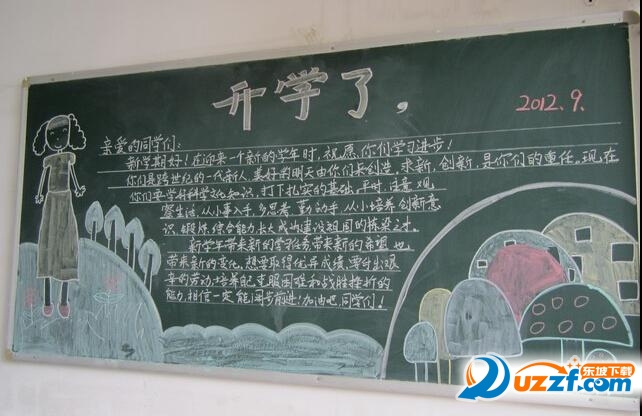 开学了，
2012.9.
亲爱的同学们：
新学期好！在迎来一个新的学年时，祝愿你们学习进步！
你们是跨世纪的一代新人，美好的明天由你们来创造，求新，创新，是你们的责任。现在
你们要学好科学文化知识，打下扎实的基础，平时注意观
察生活，从小事入手，多思考，勤动手，从小培养创新意
识，锻炼综合能力，长大成为建设祖国的栋梁之才。
新学年带来新的学习任务，带来新的希望，也
带来新的变化，想要取得优异成绩，要付出艰
辛的劳动，培养自己克服困难和战胜挫折的
能力，相信一定能同步前进！加油吧，同学们！
东坡下载
uzzf.com